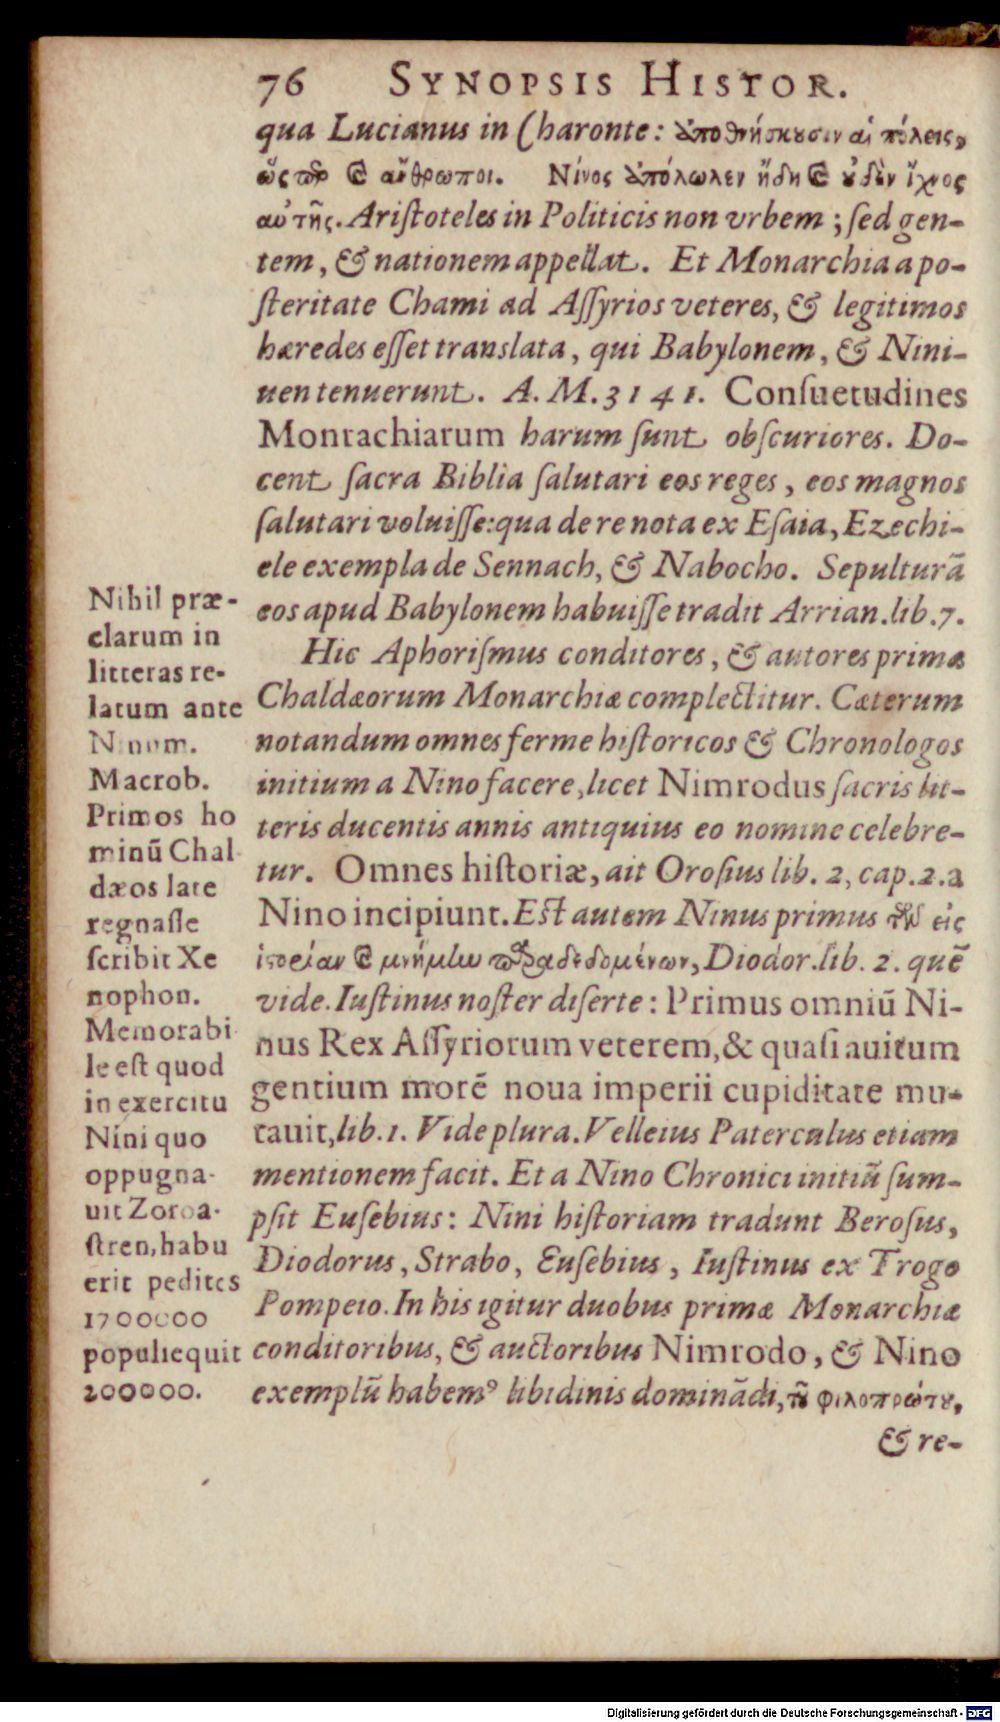 76 SYNOPSIS HISTOR.
qua Lucianus in Charonte: ἀποθνήσκουσιν αἱ πόλεις,
ὥσπερ καὶ ἄνθρωποι. Νίνος ἀπόλωλεν ἤδη καὶ οὐδὲν ἴχνος
αὐτῆς. Ariſtoteles in Politicis non vrbem; ſed gen-
tem, & nationem appellat. Et Monarchia a po-
ſteritate Chami ad Aſſyrios veteres, & legitimos
hæredes eſſet translata, qui Babylonem, & Nini-
uen tenuerunt. A. M. 3141. Conſuetudines
Monrachiarum harum ſunt obſcuriores. Do-
cent ſacra Biblia ſalutari eos reges, eos magnos
ſalutari voluiſſe: qua de re nota ex Eſaia, Ezechi-
ele exempla de Sennach, & Nabocho. Sepulturã
eos apud Babylonem habuiſſe tradit Arrian. lib. 7.
Hic Aphoriſmus conditores, & autores primæ
Chaldæorum Monarchiæ complectitur. Cæterum
notandum omnes ferme hiſtoricos & Chronologos
initium a Nino facere, licet Nimrodus ſacris lit-
teris ducentis annis antiquius eo nomine celebre-
tur. Omnes hiſtoriæ, ait Oroſius lib. 2, cap. 2. a
Nino incipiunt. Eſt autem Ninus primus τῶν εἰς
ἱστορίαν καὶ μνήμην παραδεδομένων, Diodor. lib. 2. quẽ
vide. Iuſtinus noſter diſerte: Primus omniũ Ni-
nus Rex Aſſyriorum veterem, & quaſi auitum
gentium morẽ noua imperii cupiditate mu-
tauit, lib. 1. Vide plura. Velleius Paterculus etiam
mentionem facit. Et a Nino Chronici initiũ ſum-
pſit Euſebius: Nini hiſtoriam tradunt Beroſus,
Diodorus, Strabo, Euſebius, Iuſtinus ex Trogo
Pompeio. In his igitur duobus primæ Monarchiæ
conditoribus, & auctoribus Nimrodo, & Nino
exemplũ habemꝰ libidinis dominãdi, τοῦ φιλοπρώτου,
& re-
Nihil præ-
clarum in
litteras re-
latum ante
Ninum.
Macrob.
Primos ho
minũ Chal
dæos late
regnaſſe
ſcribit Xe
nophon.
Memorabi
le eſt quod
in exercitu
Nini quo
oppugna-
uit Zoroa-
ſtren, habu
erit pedites
1700000
populi equit
200000.
Digitalisierung gefördert durch die Deutsche Forschungsgemeinschaft - DFG